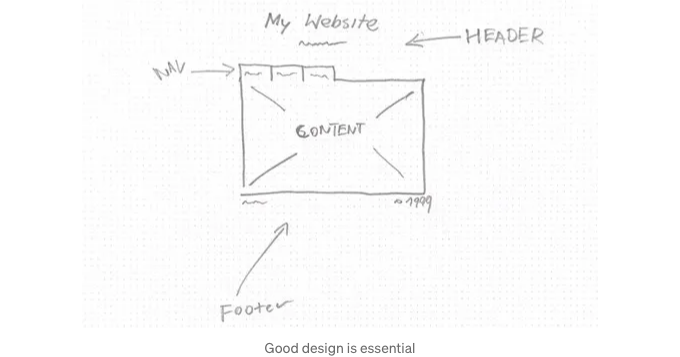 My Website
HEADER
NAV
CONTENT
1999
Footer
Good design is essential